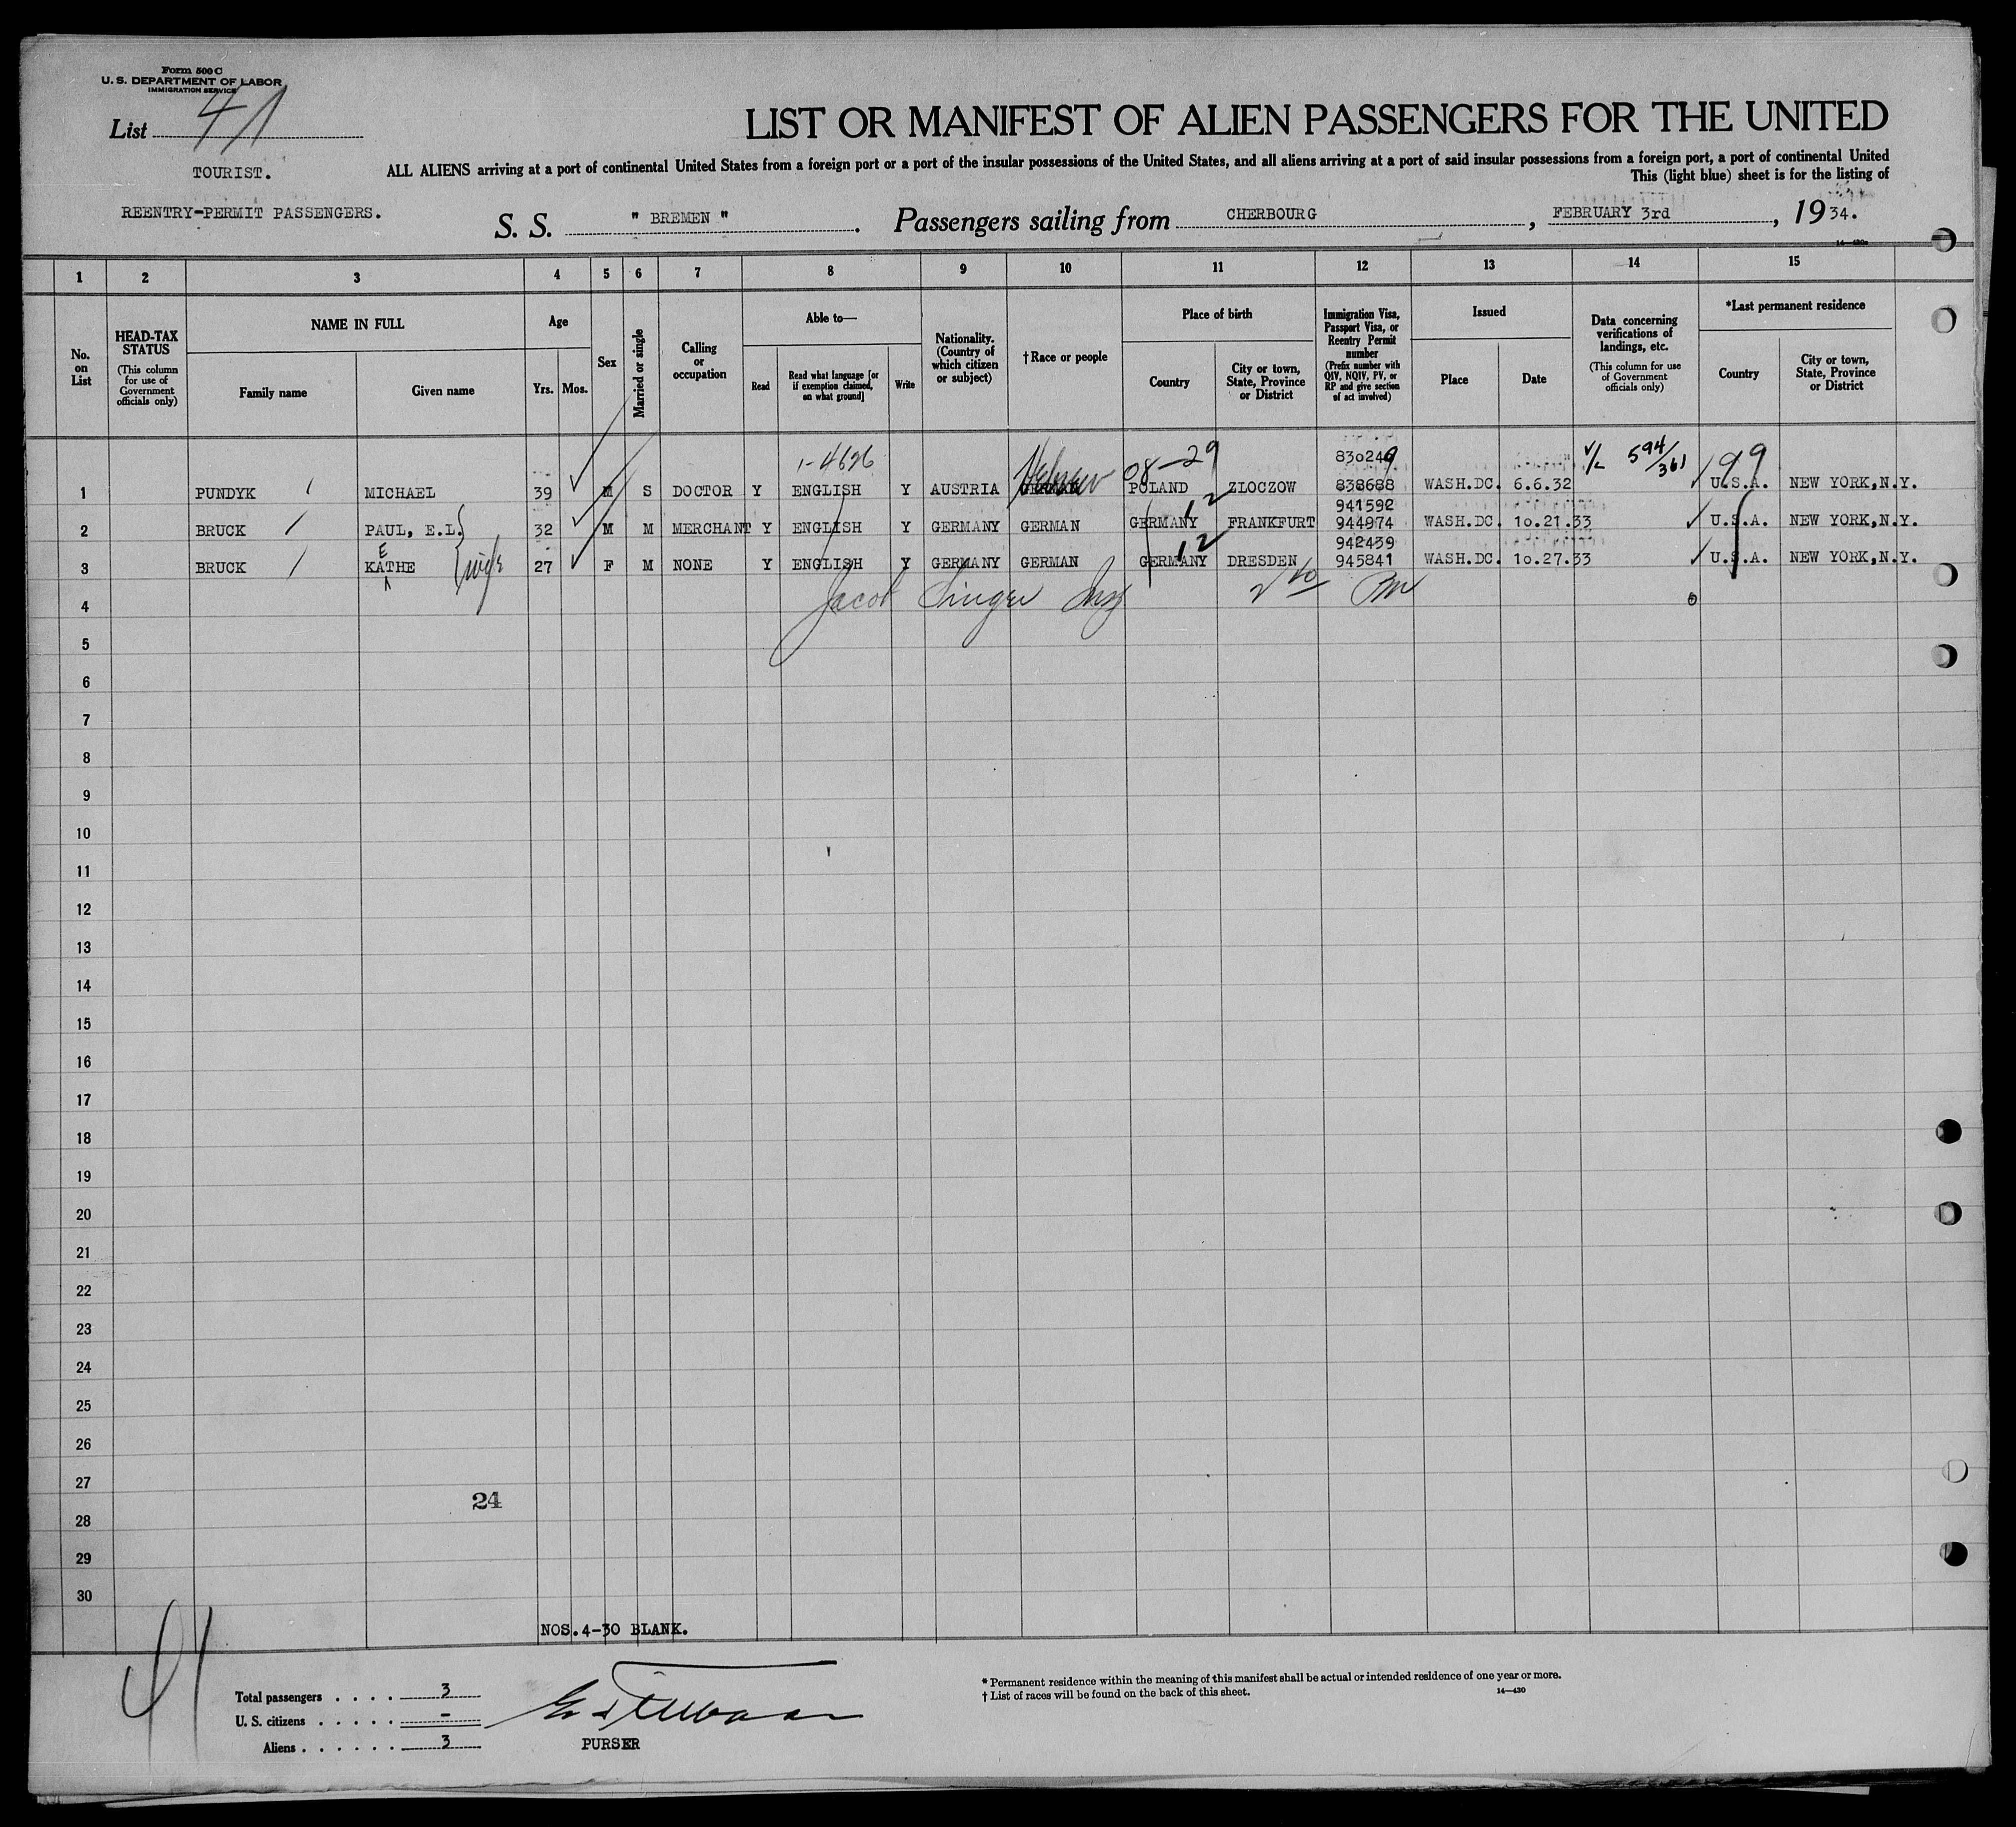 Form 500 C
U. S. DEPARTMENT OF LABOR
IMMIGRATION SERVICE
List 41
LIST OR MANIFEST OF ALIEN PASSENGERS FOR THE UNITED
TOURIST.
ALL ALIENS arriving at a port of continental United States from a foreign port or a port of the insular possessions of the United States, and all aliens arriving at a port of said insular possessions from a foreign port, a port of continental United
This (light blue) sheet is for the listing of
REENTRY-PERMIT PASSENGERS.
S. S. " BREMEN ". Passengers sailing from CHERBOURG, FEBRUARY 3rd, 1934.
14—430a
1 2 3 4 5 6 7 8 9 10 11 12 13 14 15
No. on List
HEAD-TAX STATUS (This column for use of Government officials only)
NAME IN FULL
Family name Given name
Age
Yrs. Mos.
Sex
Married or single
Calling or occupation
Able to—
Read
Read what language [or if exemption claimed, on what ground]
Write
Nationality. (Country of which citizen or subject)
†Race or people
Place of birth
Country
City or town, State, Province or District
Immigration Visa, Passport Visa, or Reentry Permit number (Prefix number with QIV, NQIV, PV, or RP and give section of act involved)
Issued
Place Date
Data concerning verifications of landings, etc. (This column for use of Government officials only)
*Last permanent residence
Country
City or town, State, Province or District
1-4626 Hebrew 08-29 830249 V/L 594/361 199
1 PUNDYK MICHAEL 39 M S DOCTOR Y ENGLISH Y AUSTRIA GERMAN POLAND ZLOCZOW 838688 WASH.DC. 6.6.32 U.S.A. NEW YORK,N.Y.
12 941592
2 BRUCK PAUL, E.L. 32 M M MERCHANT Y ENGLISH Y GERMANY GERMAN GERMANY FRANKFURT 944974 WASH.DC. 10.21.33 U.S.A. NEW YORK,N.Y.
E 12 942439
3 BRUCK KATHE wife 27 F M NONE Y ENGLISH Y GERMANY GERMAN GERMANY DRESDEN 945841 WASH.DC. 10.27.33 U.S.A. NEW YORK,N.Y.
4 Jacob Singer Insp
5
6
7
8
9
10
11
12
13
14
15
16
17
18
19
20
21
22
23
24
25
26
27
24
28
29
30
NOS.4-30 BLANK.
41
Total passengers . . . . 3
U. S. citizens . . . . . -
Aliens . . . . . . 3
PURSER
* Permanent residence within the meaning of this manifest shall be actual or intended residence of one year or more.
† List of races will be found on the back of this sheet.
14—430